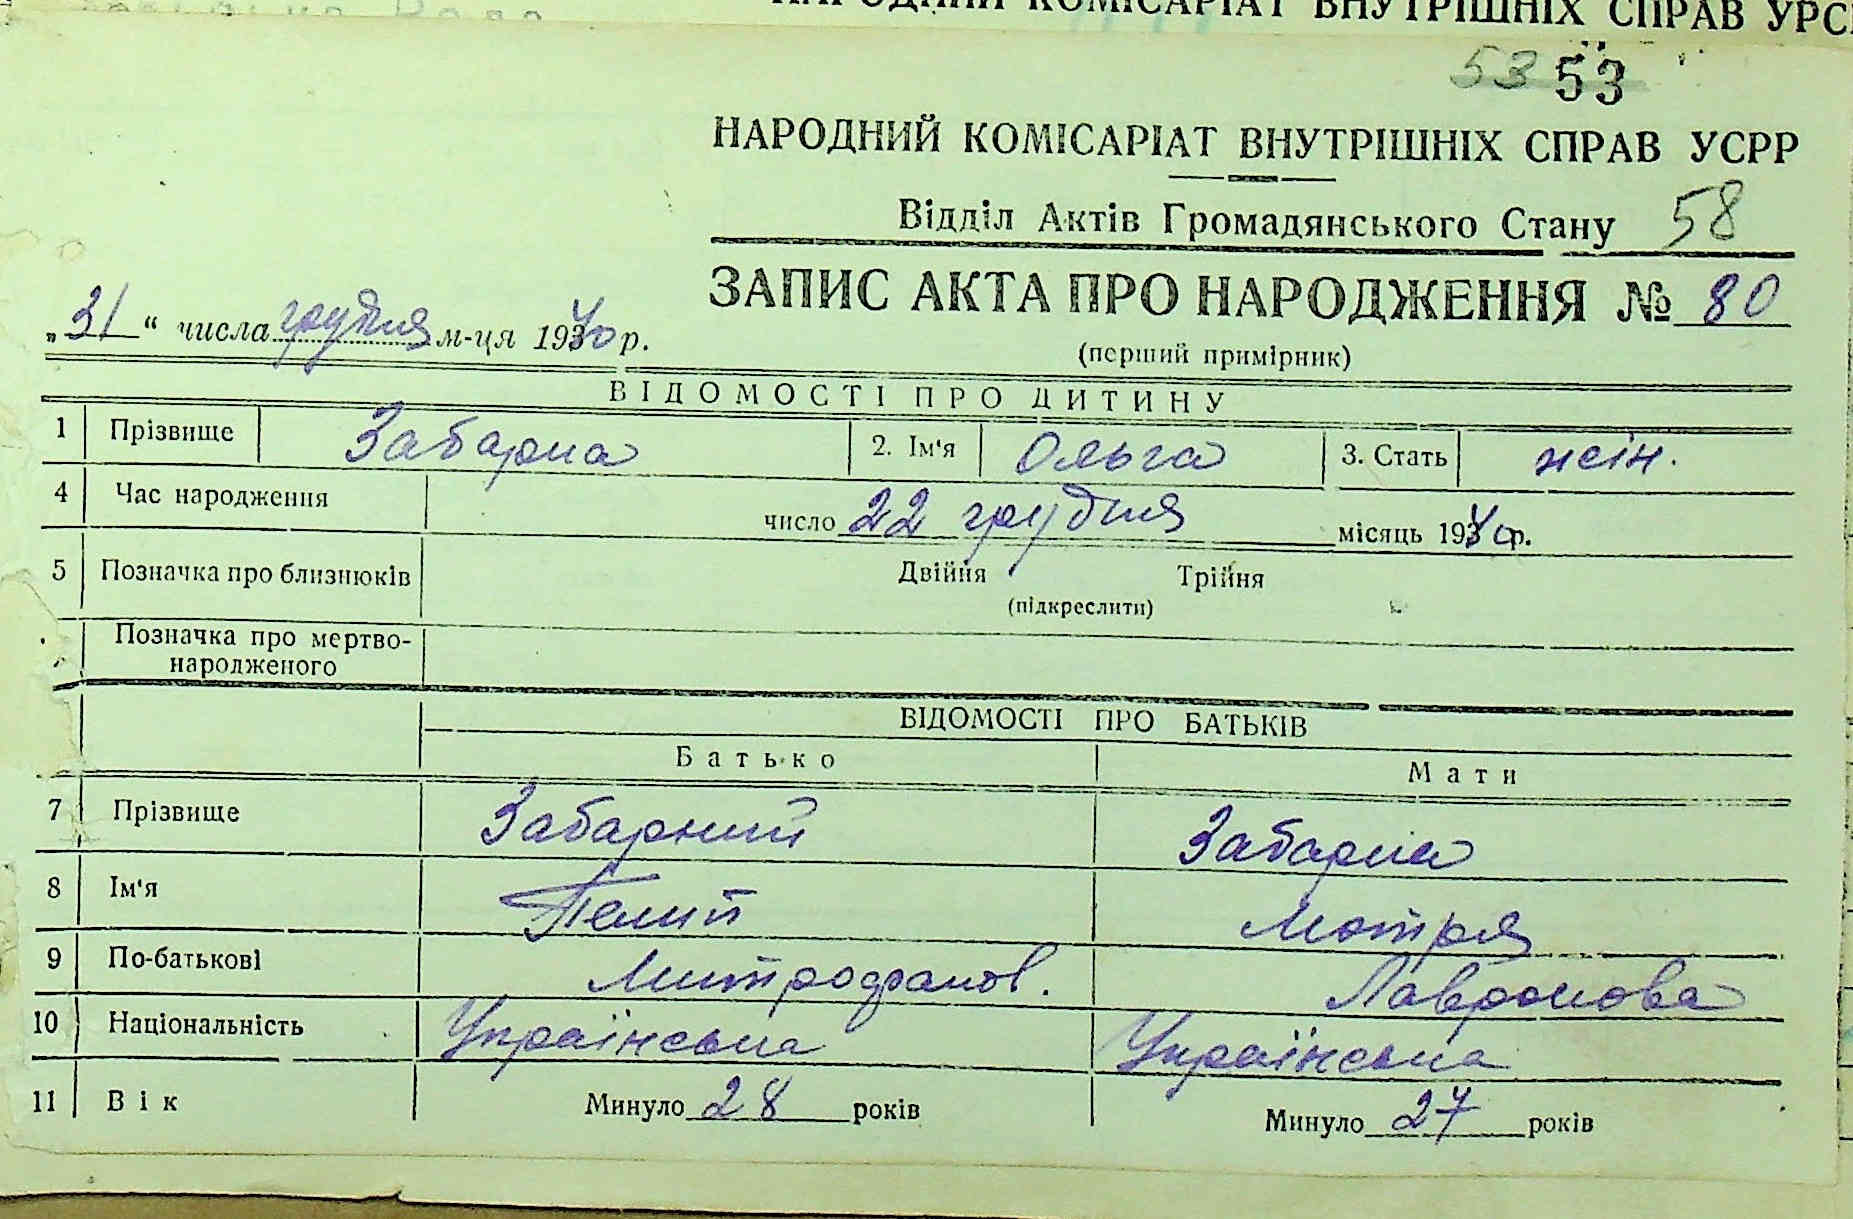 НАРОДНИЙ КОМІСАРІАТ ВНУТРІШНІХ СПРАВ УРСР
53 53
НАРОДНИЙ КОМІСАРІАТ ВНУТРІШНІХ СПРАВ УСРР
Відділ Актів Громадянського Стану 58
ЗАПИС АКТА ПРО НАРОДЖЕННЯ № 80
„31“ числа грудня м-ця 1940 р.
(перший примірник)
ВІДОМОСТІ ПРО ДИТИНУ
1 Прізвище Забарна 2. Ім'я Ольга 3. Стать жін.
4 Час народження число 22 грудня місяць 1940р.
5 Позначка про близнюків Двійня Трійня
(підкреслити)
Позначка про мертво-
народженого
ВІДОМОСТІ ПРО БАТЬКІВ
Батько Мати
7 Прізвище Забарний Забарна
8 Ім'я Мотря
9 По-батькові Митрофанов. Лавронова
10 Національність Українська Українська
11 Вік Минуло 28 років Минуло 27 років